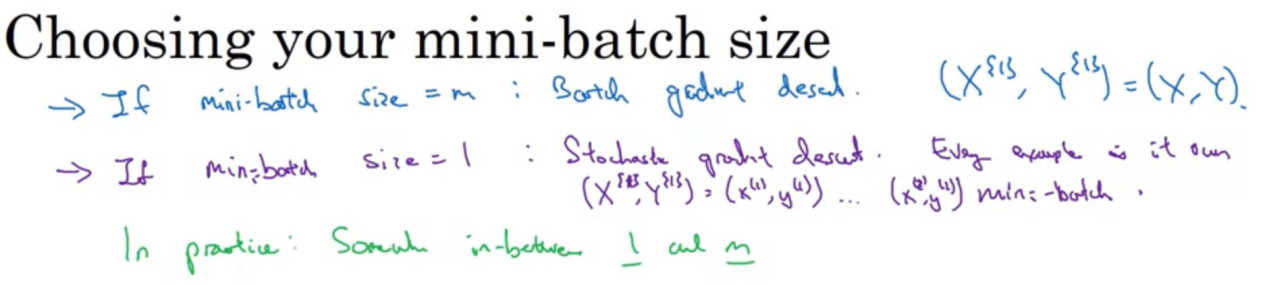 Choosing your mini-batch size
→ If mini-batch size = m : Batch gradient descent. (X^{1}, Y^{1}) = (X, Y).
→ If mini-batch size = 1 : Stochastic gradient descent. Every example is it own
(X^{1}, Y^{1}) = (x^(1), y^(1)) ... (x^(2), y^(2)) mini-batch.
In practice: Somewhere in-between 1 and m